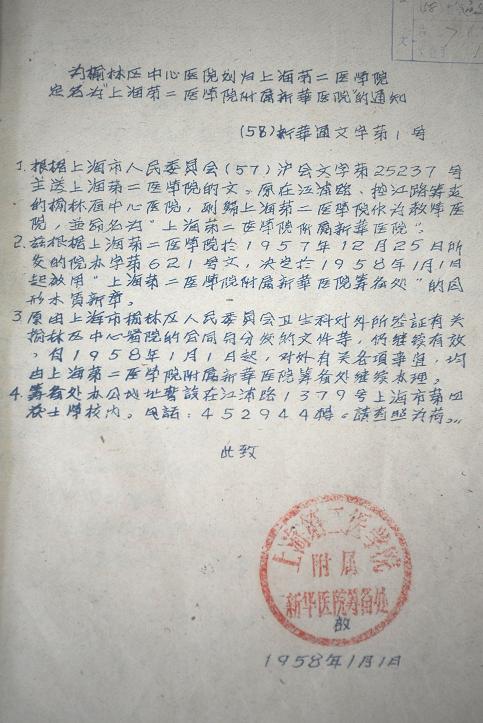 58
为榆林区中心医院划归上海第二医学院
定名为“上海第二医学院附属新華医院”的通知
(58)新華通文字第1号
1.根据上海市人民委员会(57)沪会文字第25237号
主送上海第二医学院的文。原在江浦路、控江路筹建
的榆林区中心医院,划归上海第二医学院作为教学医
院,並命名为“上海第二医学院附属新華医院”。
2.兹根据上海第二医学院於1957年12月25日所
发的院办字第621号文,决定於1958年1月1日
起启用“上海第二医学院附属新華医院筹备处”的园
形木质新章。
3.原由上海市榆林区人民委员会卫生科对外所签证有关
榆林区中心醫院的合同及分放的文件等,仍继续有效
,自1958年1月1日起,对外有关各項事宜,均
由上海第二医学院附属新华医院筹备处继续办理。
4.筹备处办公地址暫設在江浦路1379号上海市第四
護士学校内。电話:452944轉。請查照为荷。
此致
上海第二医学院
附属
新华医院筹备处
啟
1958年1月1日